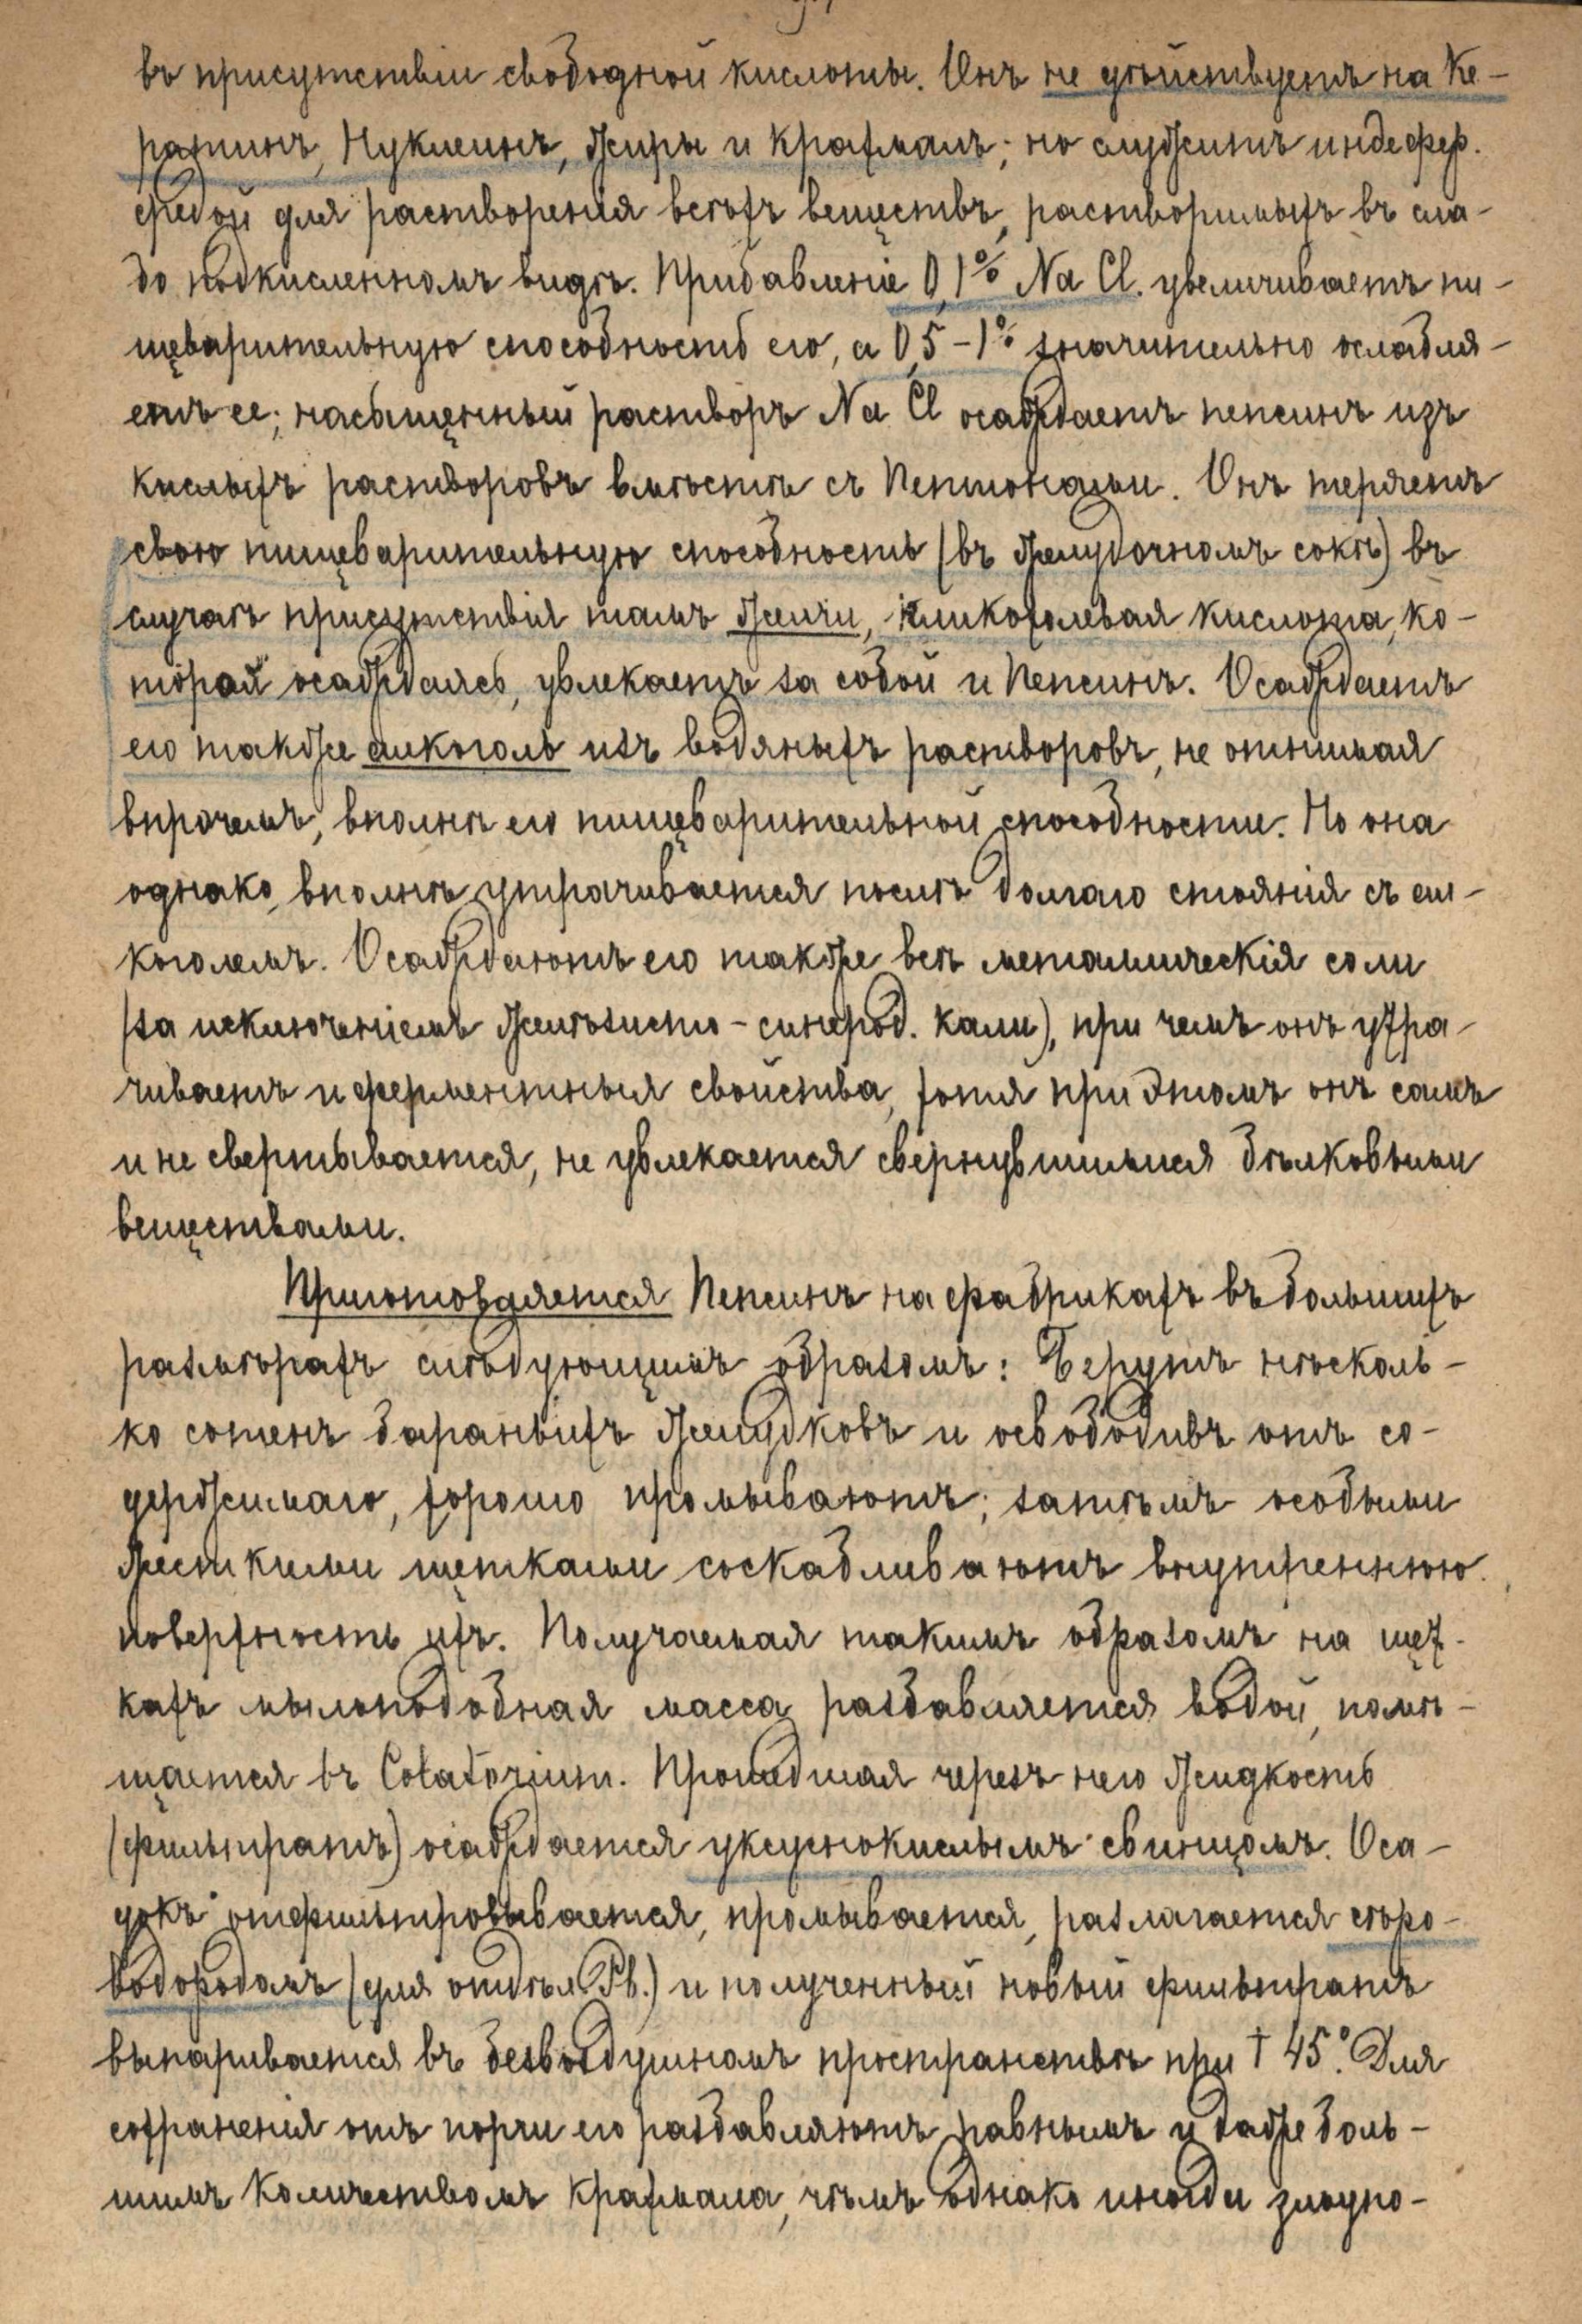 въ присутствіи свободной кислоты. Онъ не дѣйствуетъ на Ке-
ратинъ, Нуклеинъ, Жиры и Крахмалъ; но служитъ индефер.
средой для растворенія всѣхъ веществъ, растворимыхъ въ сла-
бо подкисленномъ видѣ. Прибавленіе 0,1% Na Cl. увеличиваетъ пи-
щеварительную способность его, а 0,5-1% значительно ослабля-
етъ ее; насыщенный растворъ Na Cl осаждаетъ пепсинъ изъ
кислыхъ растворовъ вмѣстѣ съ Пептонами. Онъ теряетъ
свою пищеварительную способность (въ желудочномъ сокѣ) въ
случаѣ присутствія тамъ желчи, гликохолевая кислота, ко-
торая осаждаясь, увлекаетъ за собой и Пепсинъ. Осаждаетъ
его также алкоголь изъ водяныхъ растворовъ, не отнимая
впрочемъ, вполнѣ его пищеварительной способности. Но она
однако, вполнѣ утрачивается послѣ долгаго стоянія съ ал-
коголемъ. Осаждаютъ его также всѣ металлическія соли
(за исключеніемъ Желѣзисто-синерод. кали), при чемъ онъ утра-
чиваетъ и ферментныя свойства, хотя при этомъ онъ самъ
и не свертывается, не увлекается свернувшимися бѣлковыми
веществами.
Приготовляется Пепсинъ на фабрикахъ въ большихъ
размѣрахъ слѣдующимъ образомъ: Берутъ нѣсколь-
ко сотенъ бараньихъ Желудковъ и освободивъ отъ со-
держимаго, хорошо промываютъ; затѣмъ особыми
жесткими щетками соскабливаютъ внутреннюю
поверхность ихъ. Получаемая такимъ образомъ на щет-
кахъ мыльноподобная масса разбавляется водой, помѣ-
щается въ Colatorium. Прошедшая черезъ него Жидкость
(фильтратъ) осаждается уксуснокислымъ свинцомъ. Оса-
докъ отфильтровывается, промывается, разлагается сѣро-
водородомъ (для отдѣл. Pb.) и полученный новый фильтратъ
выпаривается въ безвоздушномъ пространствѣ при † 45°. Для
сохраненія отъ порчи его разбавляютъ равнымъ и даже боль-
шимъ Количествомъ Крахмала, чѣмъ однако иногда злоупо-